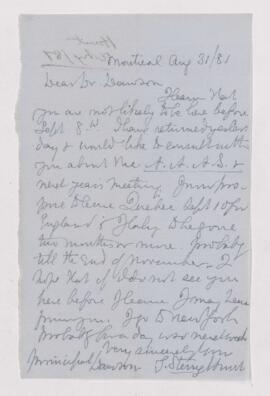 Hunt
Montreal Aug 31/81
Dear Dr. Dawson
I learn that
you are not likely to be here before
Sept 8th. I have returned yester
day & would like to consult with
you about the A. A. A. S. &
next year's meeting. I now pro-
pose to leave Quebec Sept 10 for
England & Italy to be gone
two months or more. Probably
till the end of November. I
hope that if I do not see you
here before I leave I may hear
from you. I go to New York
probably for a day or so next week
Very sincerely yours
Principal Dawson T. Sterry Hunt